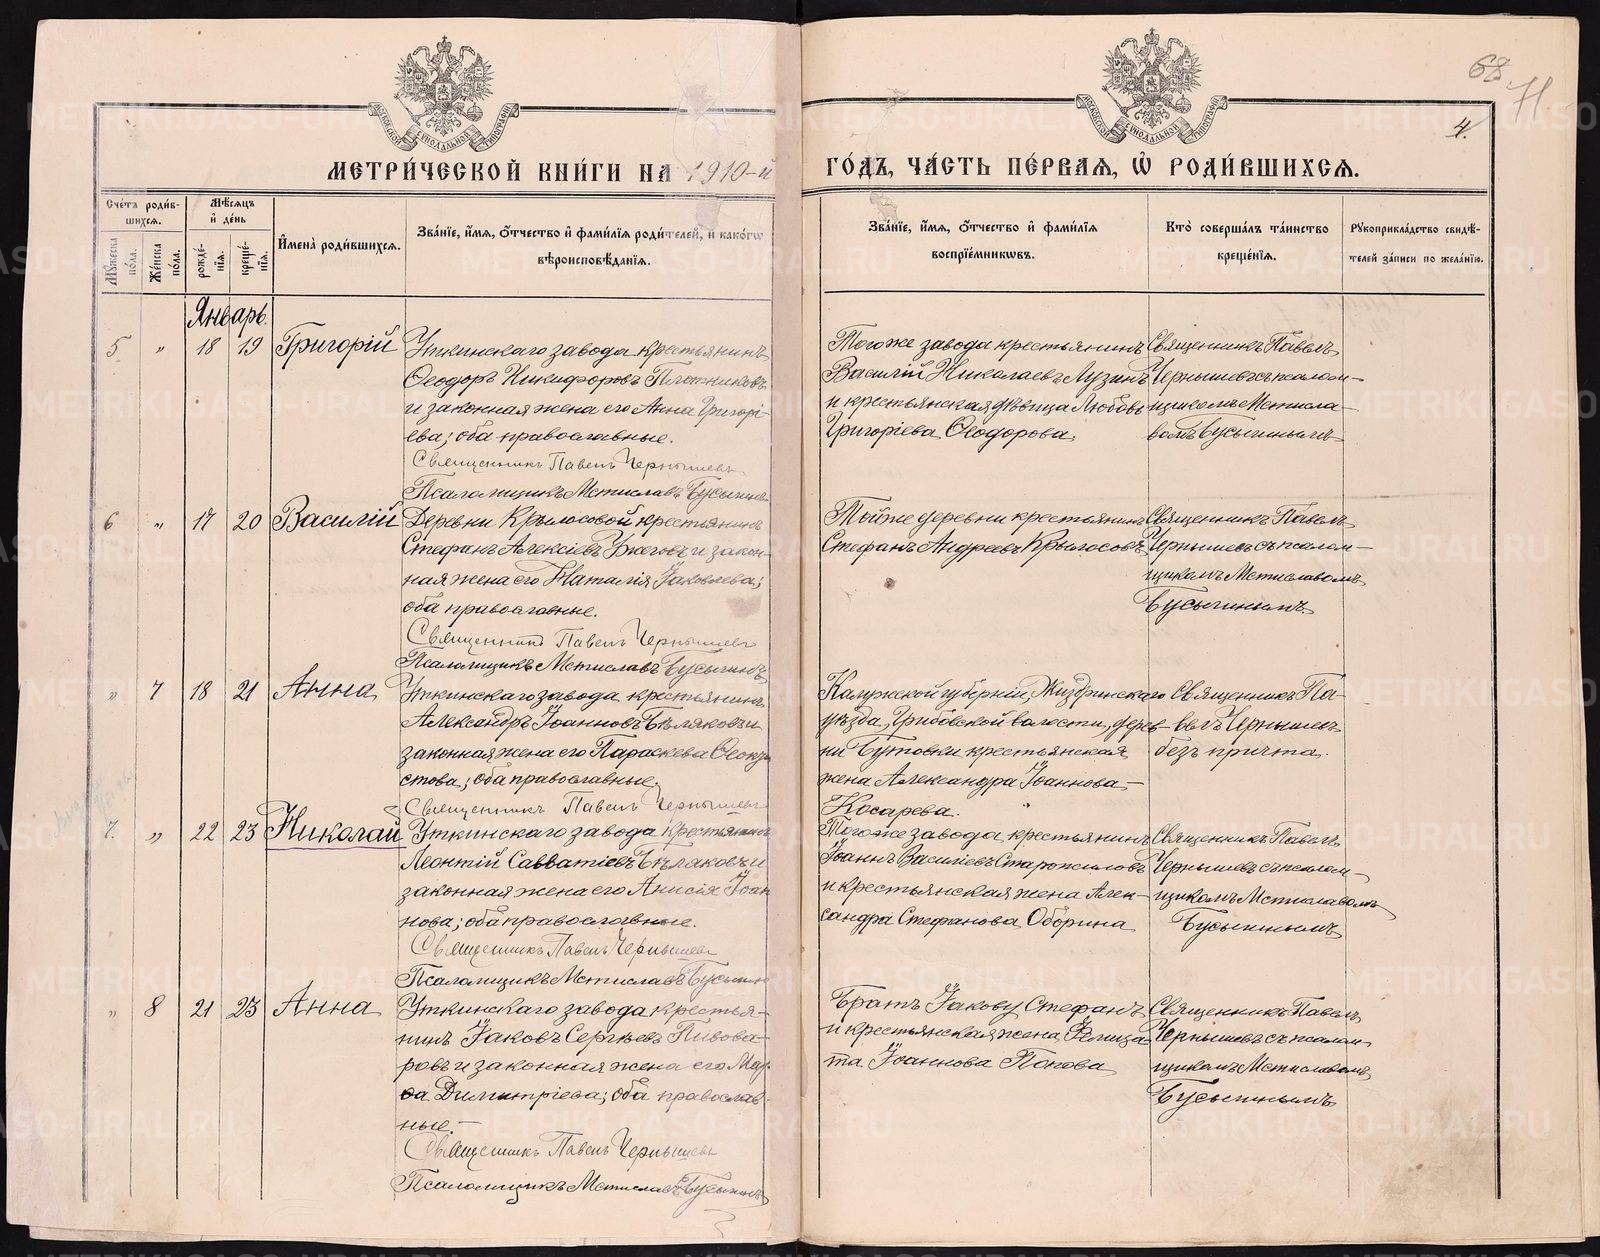 68
71
4.
МЕТРИ́ЧЕСКОЙ КНИ́ГИ НА 1910-й ГО́ДЪ, ЧА́СТЬ ПЕ́РВАЯ, Ѽ РОДИ́ВШИХСЯ.
Сче́тъ роди́вшихся.
Мꙋ́жеска по́ла.
Же́нска по́ла.
Мѣ́сяцъ и҆ де́нь
рожде́нїя.
креще́нїя.
И҆мена̀ роди́вшихся.
Зва́нїе, и҆́мя, ѻ҆́тчество и҆ фами́лїя роди́телей, и҆ како́гѡ
вѣроисповѣ́данїя.
Зва́нїе, и҆́мя, ѻ҆́тчество и҆ фами́лїя
воспрїе́мникѡвъ.
Кто̀ соверша́лъ та́инство
креще́нїя.
Рꙋкоприкла́дство свидѣ́-
телей за́писи по жела́нїю.
Январь.
5 " 18 19 Григорій
Уткинскаго завода крестьянинъ
Ѳеодоръ Никифоровъ Плотниковъ
и законная жена его Анна Григорі-
ева; оба православные.
Священникъ Павелъ Чернышевъ
Псаломщикъ Мстиславъ Бусыгинъ
Тогоже завода крестьянинъ
Василій Николаевъ Лузинъ
и крестьянская дѣвица Любовь
Григоріева Ѳеодорова.
Священникъ Павелъ
Чернышевъ съ псалом-
щикомъ Мстисла-
вомъ Бусыгинымъ
6 " 17 20 Василій
Деревни Крылосовой крестьянинъ
Стефанъ Алексіевъ и закон-
ная жена его Наталія Іаковлева;
оба православные.
Священникъ Павелъ Чернышевъ
Псаломщикъ Мстиславъ Бусыгинъ
Тойже деревни крестьянинъ
Стефанъ Андреевъ Крылосовъ
Священникъ Павелъ
Чернышевъ съ псалом-
щикомъ Мстиславомъ
Бусыгинымъ.
" 7 18 21 Анна
Уткинскаго завода крестьянинъ
Александръ Іоанновъ Бѣляковъ и
законная жена его Параскева Ѳеок-
стова; оба православные.
Священникъ Павелъ Чернышевъ
Калужской губерніи, Жиздринскаго
уѣзда, Грибовской волости, дерев-
ни Бутовки крестьянская
жена Александра Іоаннова
Косарева.
Священникъ Па-
велъ Чернышевъ
безъ причта.
7. " 22 23 Николай
Уткинскаго завода крестьянинъ
Леонтій Савватіевъ Бѣляковъ и
законная жена его Анисія Іоан-
нова; оба православные.
Священникъ Павелъ Чернышевъ
Псаломщикъ Мстиславъ Бусыгинъ
Тогоже завода крестьянинъ
Іоаннъ Василіевъ Старожиловъ
и крестьянская жена Алек-
сандра Стефанова Оборина
Священникъ Павелъ
Чернышевъ съ псалом-
щикомъ Мстиславомъ
Бусыгинымъ
" 8 21 23 Анна
Уткинскаго завода крестья-
нинъ Іаковъ Сергѣевъ Пивова-
ровъ и законная жена его Мар-
ѳа Димитріева; оба православ-
ные.
Священникъ Павелъ Чернышевъ
Псаломщикъ Мстиславъ Бусыгинъ
Братъ Іакову Стефанъ
и крестьянская жена Улита
Іоаннова Попова
Священникъ Павелъ
Чернышевъ съ псалом-
щикомъ Мстиславомъ
Бусыгинымъ